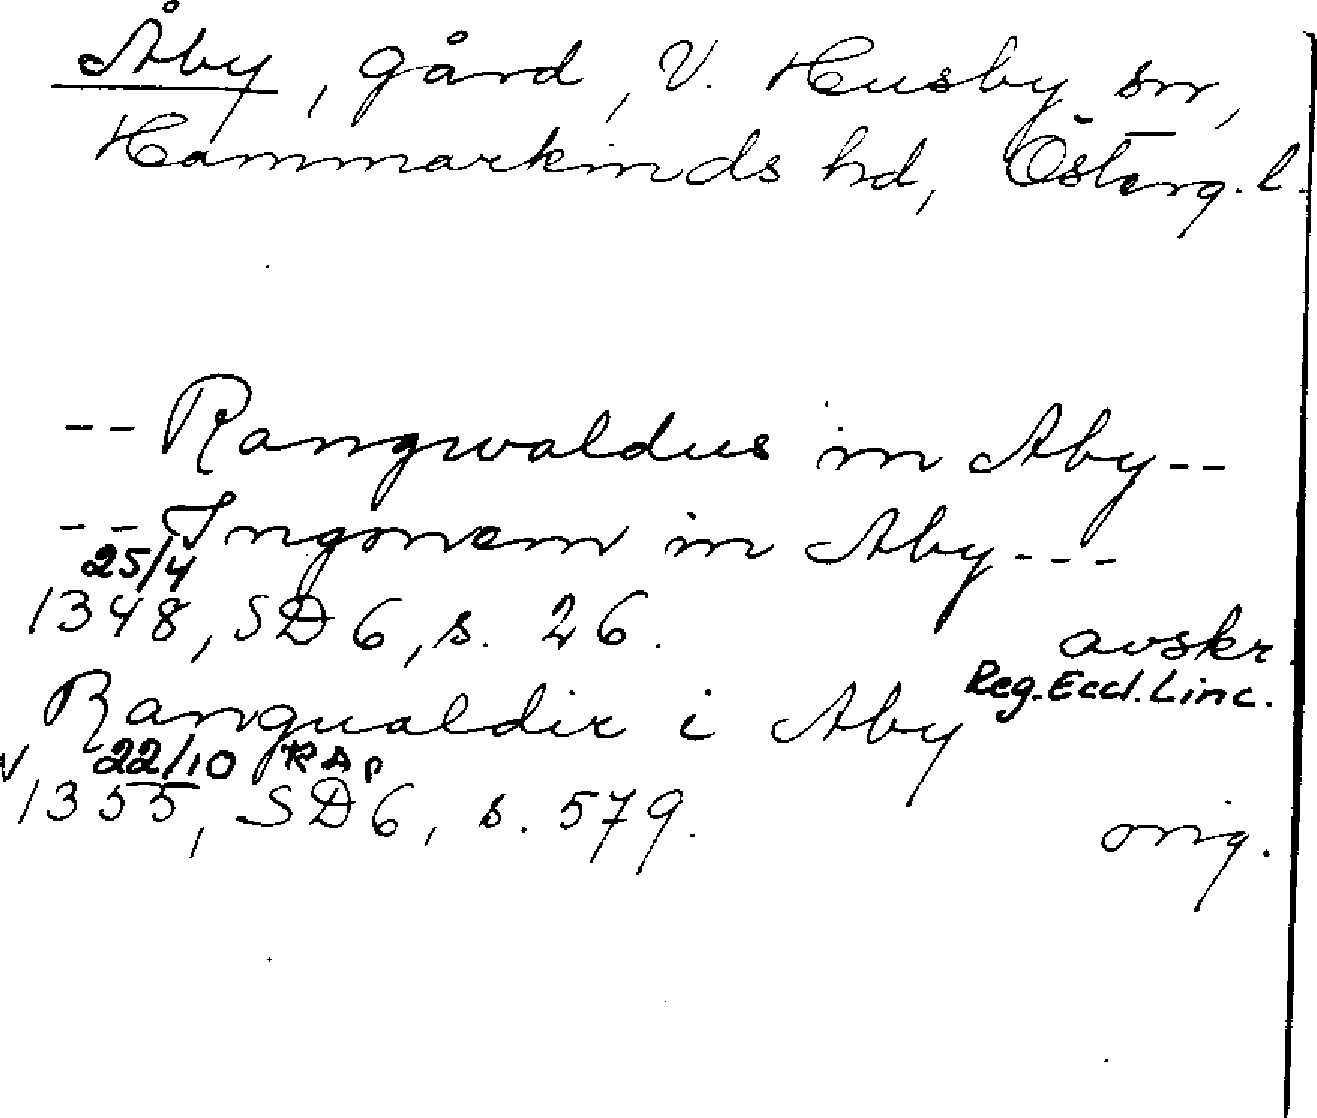 Åby, gård, V. Husby sn,
Hammarkinds hd, Österg. l.
-- Rangwaldus in Aby --
-- Ingonem in Aby ---
25/4
1348, SD 6, s. 26. avskr.
Reg. Eccl. Linc.
Rangualdir i Aby
22/10 RAp
V 1355, SD 6, s. 579. orig.